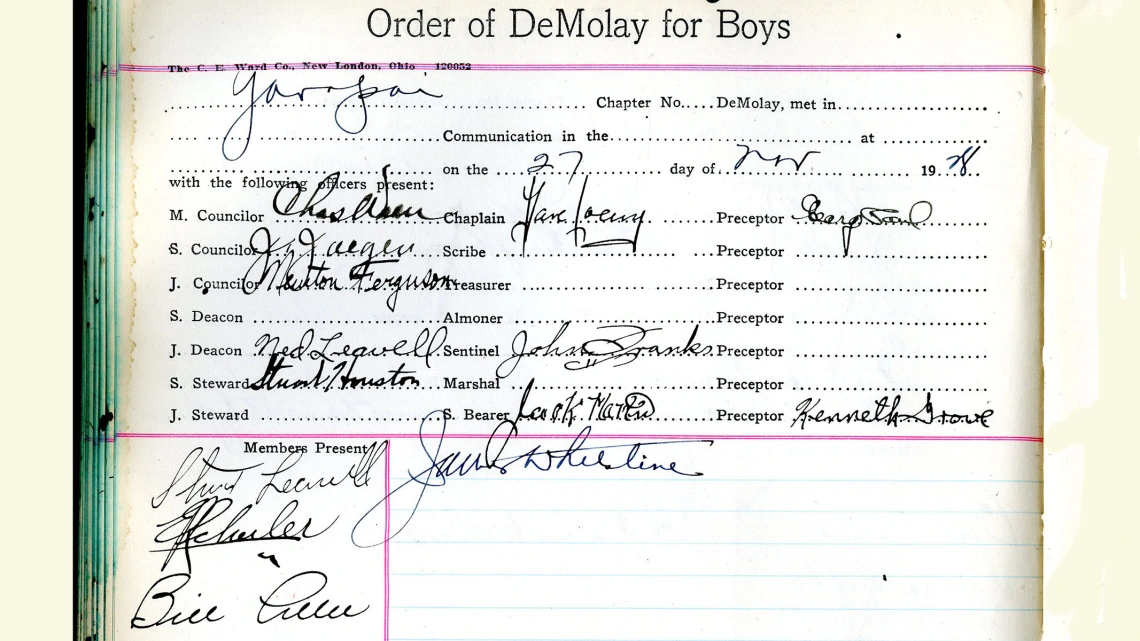 Order of DeMolay for Boys
The C. E. Ward Co., New London, Ohio 120052
Yavapai Chapter No. DeMolay, met in
Communication in the at
on the 27 day of Nov 19 28
with the following officers present:
M. Councilor Chas Chaplain Preceptor
S. Councilor Jaeger Scribe Preceptor
J. Councilor Newton Ferguson Treasurer Preceptor
S. Deacon Almoner Preceptor
J. Deacon Ned Leavell Sentinel John Franks Preceptor
S. Steward Stuart Houston Marshal Preceptor
J. Steward S. Bearer Jack Martin Preceptor Kenneth Grove
Members Present James Whetstine
Leavell
Bill